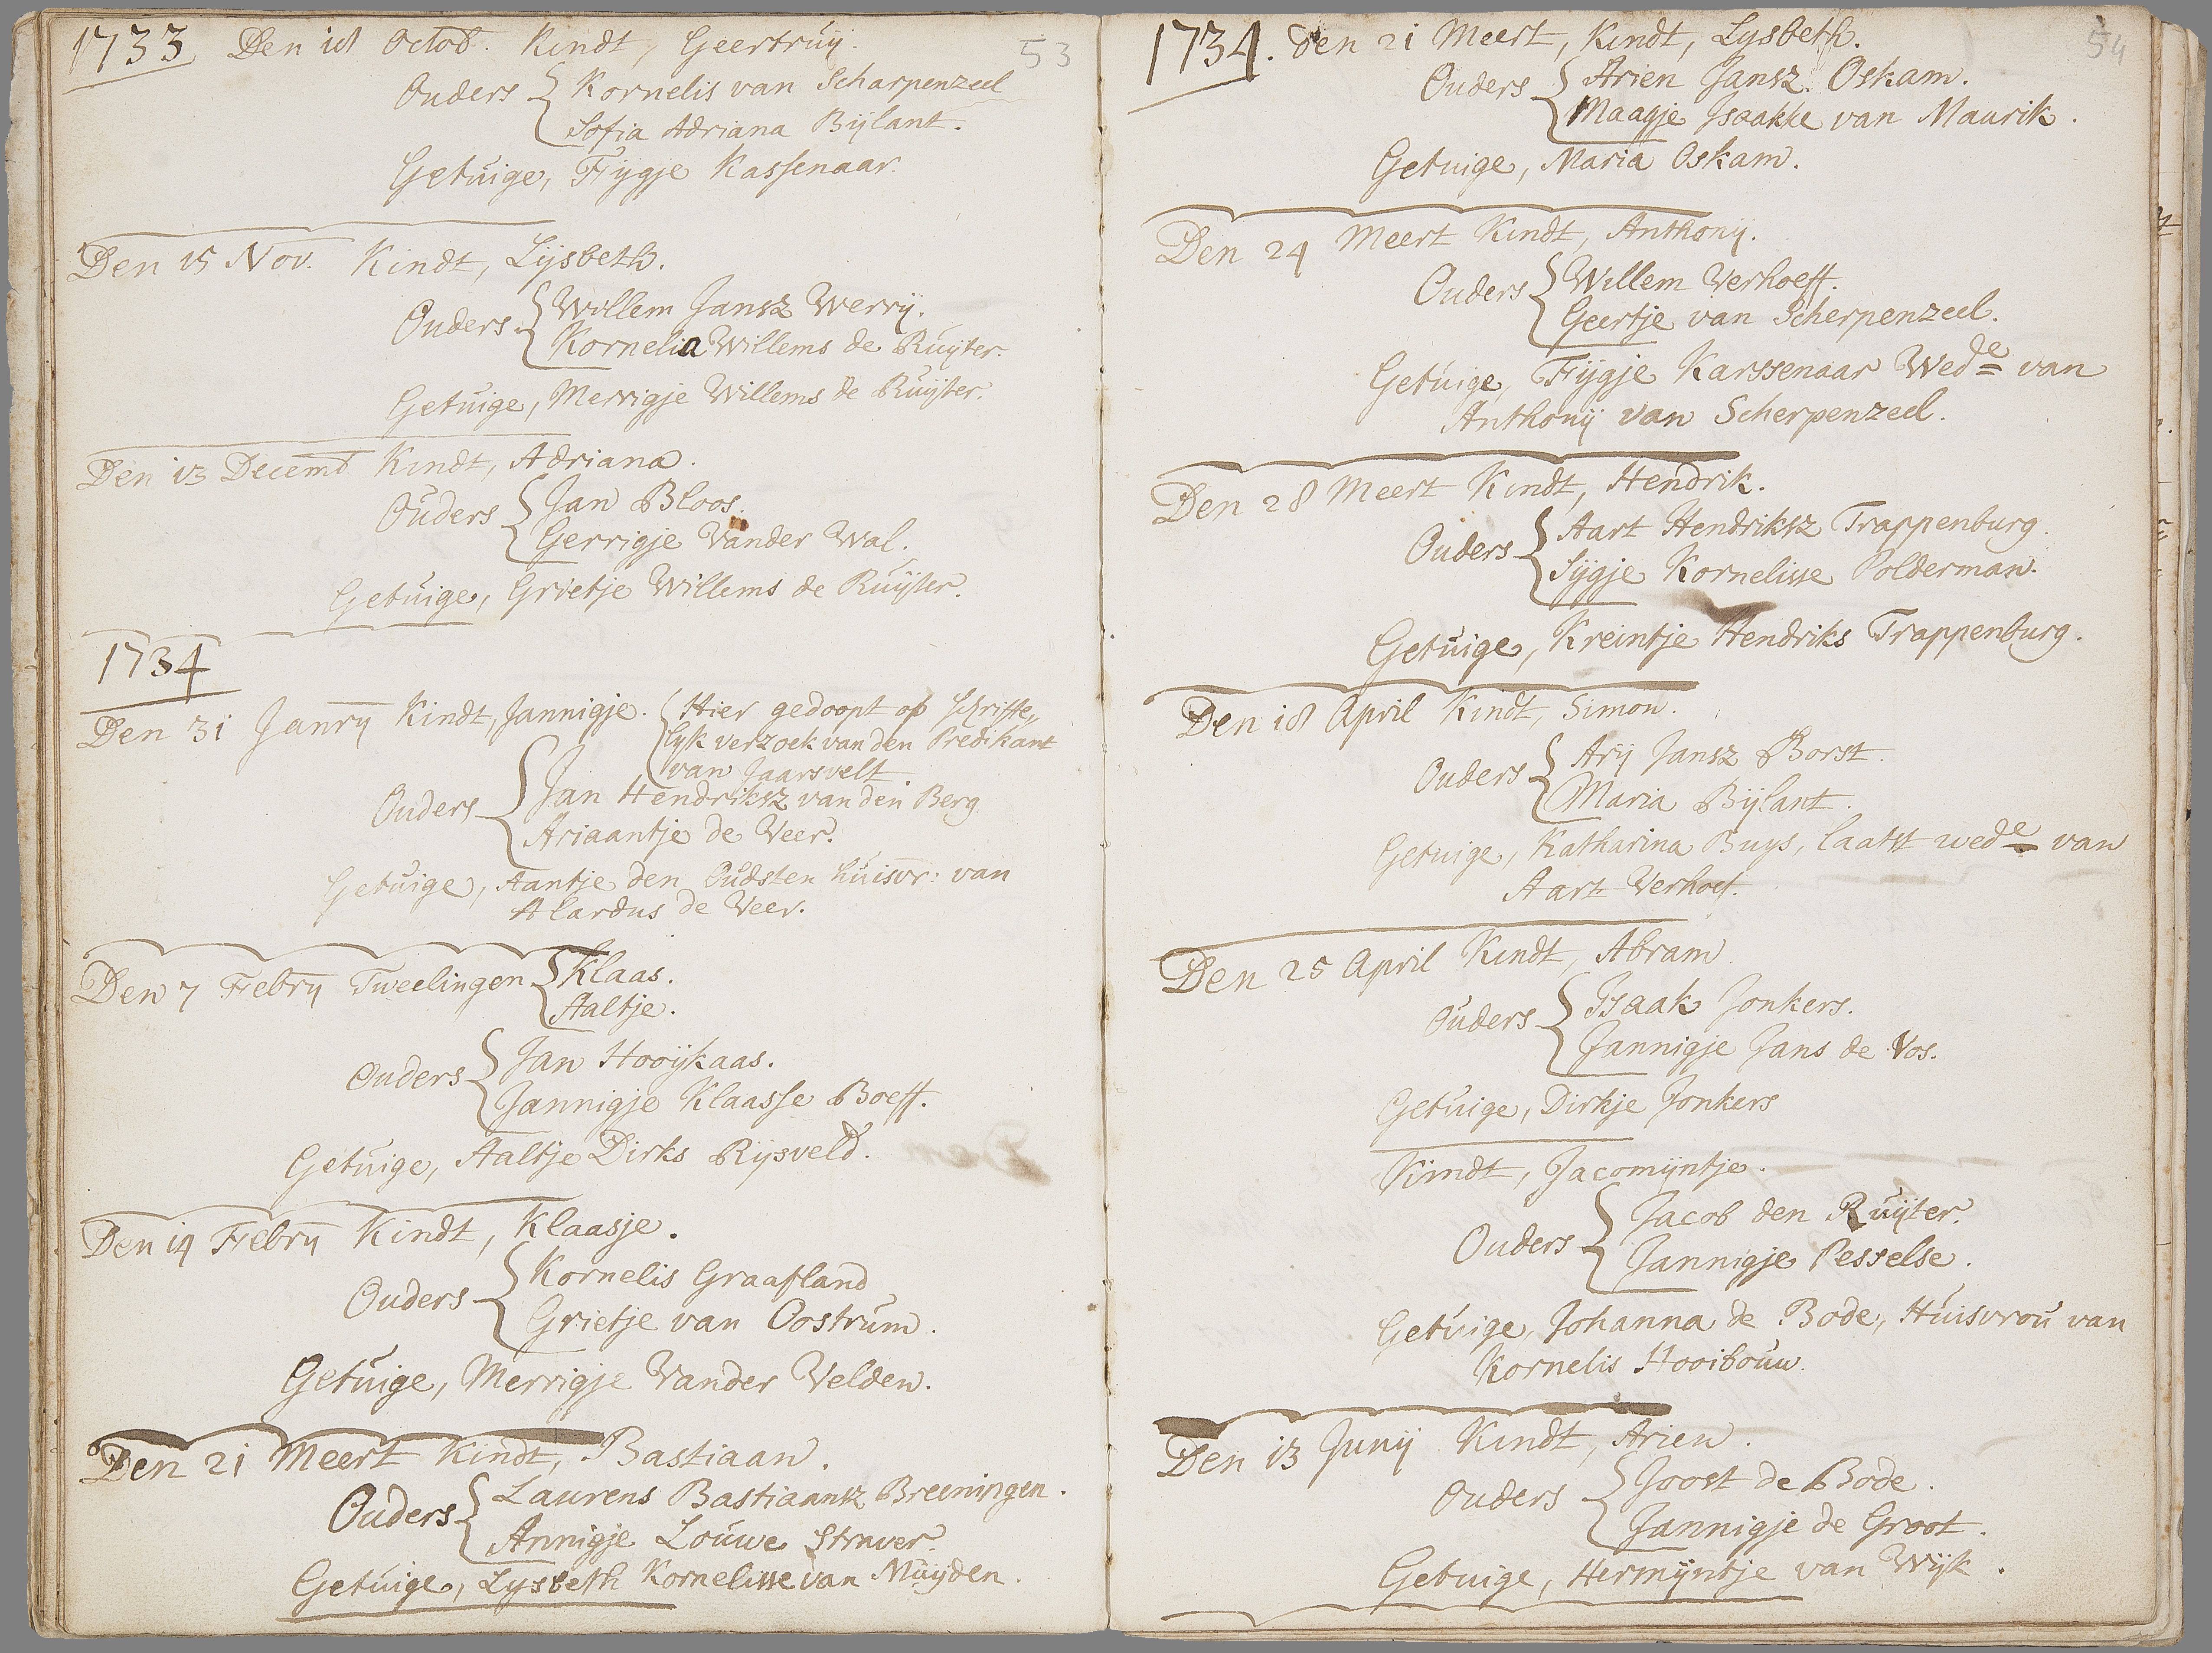 1733 Den 18 Octob. Kindt, Geertruy. 53
Ouders Kornelis van Scharpenzeel
Sofia Adriana Bijlant.
Getuige, Fijgje Kassenaar.
Den 15 Nov. Kindt, Lijsbeth.
Ouders Willem Jansz Werry.
Kornelia Willems de Ruijter.
Getuige, Merrigje Willems de Ruijter.
Den 13 Decemb Kindt, Adriana.
Ouders Jan Bloos.
Gerrigje Vander Wal.
Getuige, Grietje Willems de Ruijter.
1734
Den 31 Janry Kindt, Jannigje. Hier gedoopt op schrifte„
lyk verzoek van den Predikant
van Jaarsvelt.
Ouders Jan Hendriksz van den Berg
Ariaantje de Veer.
Getuige, Aantje den Oudsten huisvr: van
Alardus de Veer.
Den 7 Febry Tweelingen Klaas.
Aaltje.
Ouders Jan Hooijkaas.
Jannigje Klaasse Boeff.
Getuige, Aaltje Dirks Rijsveld.
Den 14 Febry Kindt, Klaasje.
Ouders Kornelis Graafland
Grietje van Oostrum.
Getuige, Merrigje Vander Velden.
Den 21 Meert Kindt, Bastiaan.
Ouders Laurens Bastiaansz Breeningen.
Annigje Louwe Straver.
Getuige, Lysbeth Kornelisse van Muijden.
1734. Den 21 Meert, Kindt, Lysbeth. 54
Ouders Arien Jansz. Oskam.
Maagje Isaakke van Maurik.
Getuige, Maria Oskam.
Den 24 Meert Kindt, Anthonij.
Ouders Willem Verhoeff.
Geertje van Scherpenzeel.
Getuige, Fijgje Karssenaar Wede van
Anthonij van Scherpenzeel.
Den 28 Meert Kindt, Hendrik.
Ouders Aart Hendriksz Trappenburg.
Sijgje Kornelisse Polderman.
Getuige, Kreintje Hendriks Trappenburg.
Den 18 April Kindt, Simon.
Ouders Arij Jansz Borst.
Maria Bijlant.
Getuige, Katharina Buys, laatst wede van
Aart Verhoef.
Den 25 April Kindt, Abram.
Ouders Isaak Jonkers.
Jannigje Jans de Vos.
Getuige, Dirkje Jonkers
Kindt, Jacomijntje.
Ouders Jacob den Ruijter.
Jannigje Pesselse.
Getuige, Johanna de Bode, Huisvrou van
Kornelis Hooibouw.
Den 13 Junij Kindt, Arien.
Ouders Joost de Bode.
Jannigje de Groot.
Getuige, Hermijntje van Wijk.